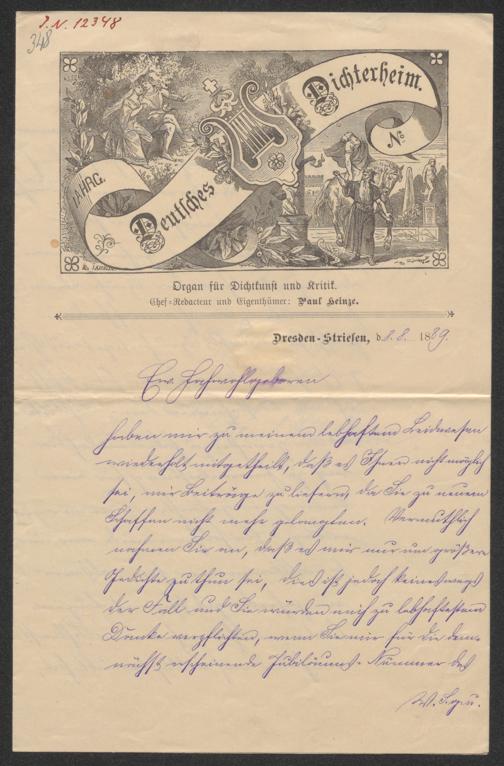 I. N. 12348
348
Deutsches
Dichterheim.
JAHRG.
No
Organ für Dichtkunst und Kritik.
Chef-Redacteur und Eigenthümer: Paul Heinze.
Dresden-Striesen, d. 8. 8. 1889.
Ew. Hochwohlgeboren
haben mir zu meinem lebhaften Leidwesen
wiederholt mitgetheilt, daß es Ihnen nicht möglich
sei, mir Beiträge zu liefern, da Sie zu neuem
Schaffen nicht mehr gelangten. Vermuthlich
nahmen Sie an, daß es mir nur um größere
Gedichte zu thun sei, dies ist jedoch keineswegs
der Fall und Sie würden mich zu lebhaftestem
Danke verpflichten, wenn Sie mir für die dem-
nächst erscheinende Jubiläums-Nummer des